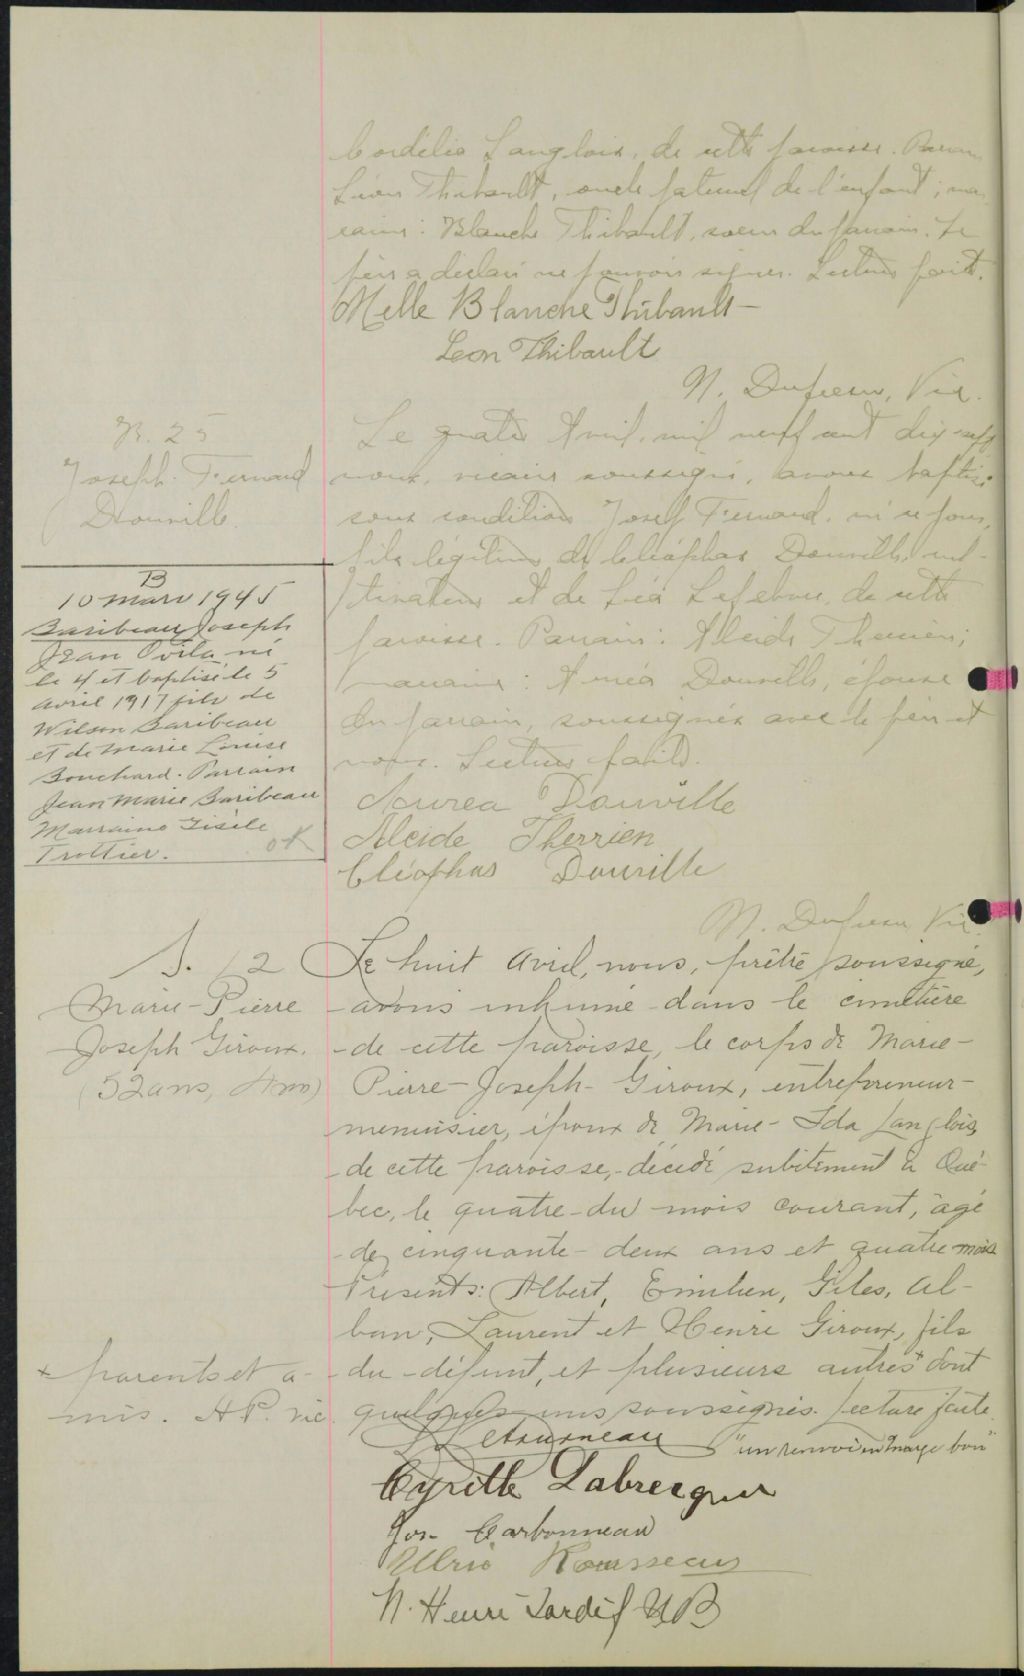 Cordélia Langlois, de cette paroisse. Parrain
Léon Thibault, oncle paternel de l'enfant; mar
raine: Blanche Thibault, soeur du parrain. Le
père a déclaré ne pouvoir signer. Lecture faite.
Melle Blanche Thibault
Leon Thibault
N. Dufresne, Vic.
B. 25
Joseph. Fernand
Douville
Le quatre Avril, mil neuf cent dix-sept
nous, vicaire soussigné, avons baptisé
sous condition Josef Fernand, né ce jour,
fils légitime de Cléophas Douville, cul-
tivateur et de Léa Lefebvre, de cette
paroisse. Parrain: Alcide Therrien;
marraine: Auréa Douville, épouse
du parrain, soussignés avec le père et
nous. Lecture faite.
Aurea Douville
Alcide Therrien
Cléophas Douville
N. Dufresne Vic.
B
10 mars 1945
Baribeau Joseph
Jean Ovila né
le 4 et baptisé le 5
avril 1917 fils de
Wilson Baribeau
et de Marie Louise
Bouchard. Parrain
Jean Marie Baribeau
Marraine Gisèle
Trottier. ok
S. 12
Marie-Pierre
Joseph Giroux.
(52 ans, 4 m)
Le huit avril, nous, prêtre soussigné,
avons inhumé dans le cimetière
de cette paroisse, le corps de Marie-
Pierre-Joseph-Giroux, entrepreneur-
menuisier, époux de Marie-Ida Langlois,
de cette paroisse, décédé subitement à Qué-
bec, le quatre du mois courant, âgé
de cinquante-deux ans et quatre mois
Présents: Albert, Emilien, Giles, Al-
ban, Laurent et Henri Giroux, fils
du défunt, et plusieurs autres + dont
quelques uns soussignés. Lecture faite.
+ parents et a-
mis. A.P. vic
Letourneau "un renvoi en marge bon"
Cyrille Labrecque
Jos. Carbonneau
Ulric Rousseau
N. Henri Tardif